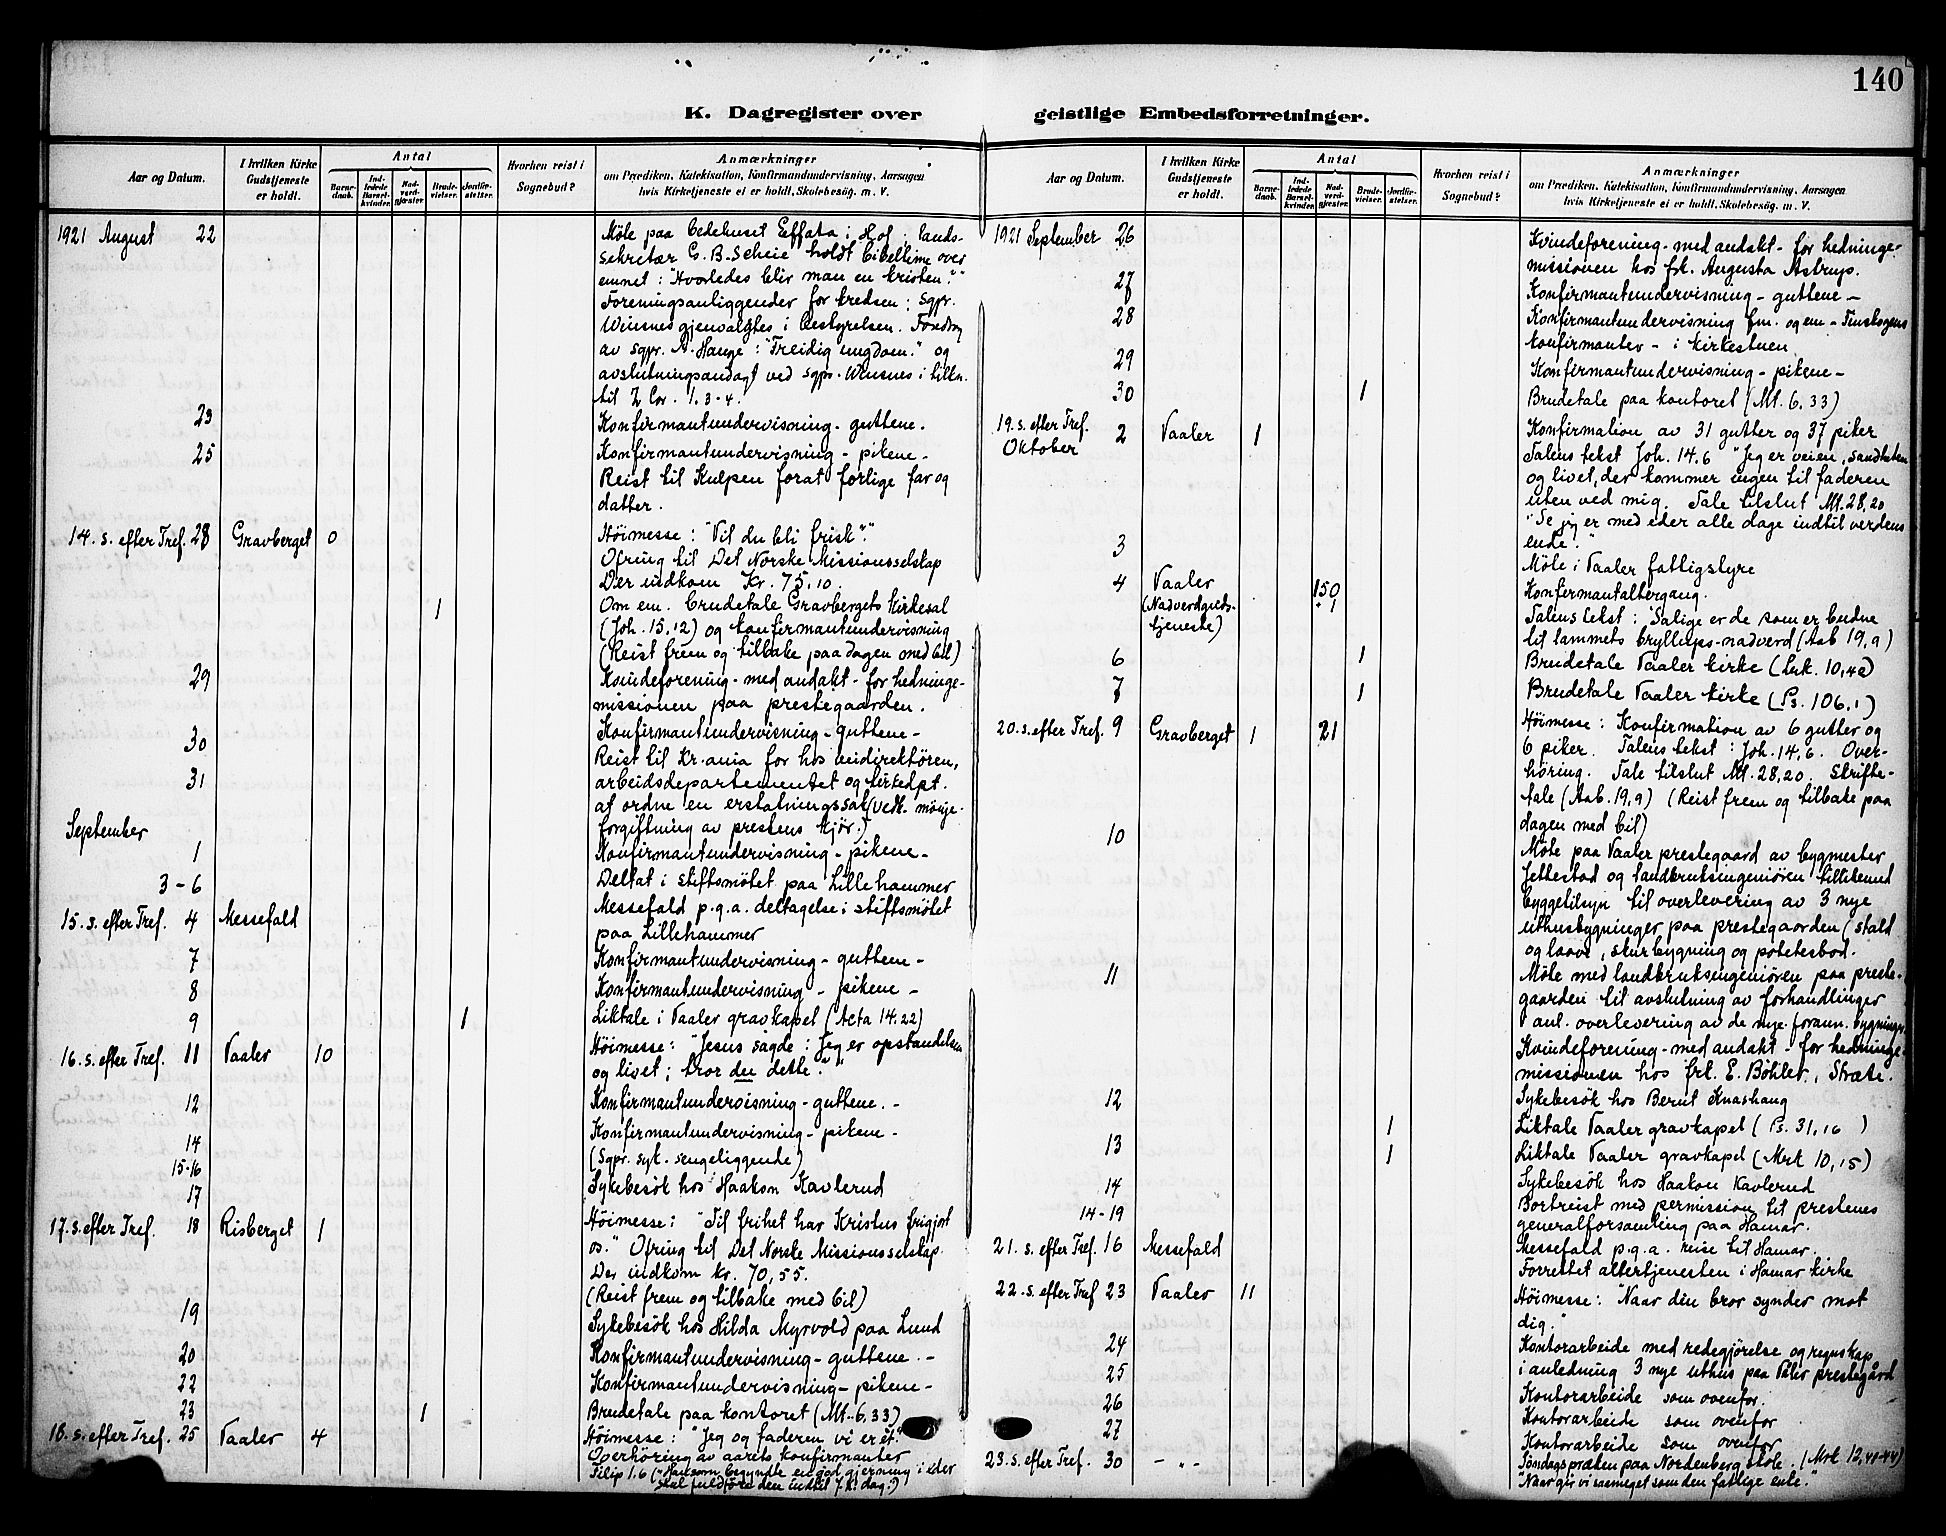 140
K. Dagregister over geistlige Embedsforretninger.
Aar og Datum.
I hvilken Kirke Gudstjeneste er holdt.
Antal
Barne-daab.
Ind-ledede Barsel-kvinder.
Nad-verd-gjester.
Brude-vielser.
Jordfæ-stelser.
Hvorhen reist i Sognebud?
Anmærkninger
om Prædiken, Katekisation, Konfirmandundervisning, Aarsagen
hvis Kirketjeneste ei er holdt, Skolebesøg, m. V.
1921 August 22 Møte paa bedehuset Effata i Hof. Lands-
sekretær G. B. Scheie holdt bibeltime over
emnet: "Hvorledes blir man en kristen?"
Foreningsanliggender for kredsen: Sgpr.
Winsnes gjenvalgtes i bestyrelsen. Foredrag
av sgpr. A. Hauge: "Freidig ungdom." og
avslutningsandagt ved sgpr. Winsnes i tilkn.
til 2 Cor. 1. 3-4.
23 Konfirmantundervisning - guttene.
25 Konfirmantundervisning - pikene -
Reist til Kulpen forat forlige far og
datter.
14. s. efter Tref. 28 Gravberget 0 Høimesse: "Vil du bli frisk?"
Ofring til Det Norske Missionsselskap
Der indkom Kr. 75,10.
1 Om em. brudetale Gravbergets kirkesal
(Joh. 15,12) og konfirmantundervisning
(Reist frem og tilbake paa dagen med bil)
29 Kvindeforening - med andakt - for hedninge-
missionen paa prestegaarden.
30 Konfirmantundervisning - guttene -
31 Reist til Kr.ania for hos veidirektören,
arbeidsdepartementet og kirkedpt.
at ordne en erstatningssak (vedk. mønje-
forgiftning av prestens kjør.)
September
1 Konfirmantundervisning - pikene -
3-6 Deltat i stiftsmötet paa Lillehammer
15. s. efter Tref. 4 Messefald Messefald p.g.a. deltagelse i stiftsmötet
paa Lillehammer
7 Konfirmantundervisning - guttene -
8 Konfirmantundervisning - pikene -
9 1 Liktale i Vaaler gravkapel (Acta 14.22)
16. s. efter Tref. 11 Vaaler 10 Høimesse: "Jesus sagde: Jeg er opstandelsen
og livet; tror du dette?"
12 Konfirmantundervisning - guttene. -
14 Konfirmantundervisning - pikene -
15-16 (Sgpr. syk. sengeliggende)
17 Sykebesök hos Haakon Kavlerud
17. s. efter Tref. 18 Risberget 1 Høimesse: "Til frihet har Kristus frigjort
os." Ofring til Det Norske Missionsselskap.
Der indkom kr. 70,55.
(Reist frem og tilbake med bil)
19 Sykebesök hos Hilda Myrvold paa Lund
20 Konfirmantundervisning - guttene. -
22 Konfirmantundervisning - pikene -
23 1 Brudetale paa kontoret (Mt. 6,33)
18. s. efter Tref. 25 Vaaler 4 Høimesse: "Jeg og faderen vi er ét"
Overhöring av aarets konfirmanter
Filip 1.6 ("Han som begyndte en god gjerning i eder
skal fuldföre den indtil J. K. dag.")
Aar og Datum.
I hvilken Kirke Gudstjeneste er holdt.
Antal
Barne-daab.
Ind-ledede Barsel-kvinder.
Nad-verd-gjester.
Brude-vielser.
Jordfæ-stelser.
Hvorhen reist i Sognebud?
Anmærkninger
om Prædiken, Katekisation, Konfirmandundervisning, Aarsagen
hvis Kirketjeneste ei er holdt, Skolebesøg, m. V.
1921 September 26 Kvindeforening - med andakt - for hedninge-
missionen hos frk. Augusta Astrup.
27 Konfirmantundervisning - guttene -
28 Konfirmantundervisning fm. og em - Finskogens
konfirmanter - i kirkestuen.
29 Konfirmantundervisning - pikene -
30 1 Brudetale paa kontoret (Mt. 6,33)
19. s. efter Tref. Oktober 2 Vaaler 1 Konfirmation av 31 gutter og 37 piker
Talens tekst Joh. 14,6 "Jeg er veien, sandheten
og livet, der kommer ingen til faderen
uten ved mig. Tale tilslut Mt. 28,20
"Se jeg er med eder alle dage indtil verdens
ende."
3 Møte i Vaaler fattigstyre
4 Vaaler (Nadverdgudstjeneste) 150 + 1 Konfirmantaltergang.
Talens tekst: "Salige er de som er budne
til Lammets bryllups-nadverd (Aab 19,9)
6 1 Brudetale Vaaler kirke (Luk. 10,42)
7 1 Brudetale Vaaler kirke (Ps. 106,1)
20. s. efter Tref. 9 Gravberget 1 21 Høimesse: Konfirmation av 6 gutter og
6 piker. Talens tekst: Joh. 14,6. Over-
høring. Tale tilslut Mt. 28,20. Skrifte-
tale (Aab. 19,9) (Reist frem og tilbake paa
dagen med bil)
10 Møte paa Vaaler prestegaard av bygmester
Jettestad og landbruksingeniøren tillikemed
byggetilsyn til overlevering av 3 nye
uthusbygninger paa prestegaarden (stald
og laave, skurbygning og potetesbod.
11 Møte med landbruksingeniøren paa preste-
gaarden til avslutning av forhandlinger
anl. overlevering av de nye foranн. bygninger
Kvindeforening - med andakt - for hedninge-
missionen hos frk. E. Böhler, Stræte.
12 Sykebesök hos Bernt Knashaug
1 Liktale Vaaler gravkapel (Ps. 31,16 )
13 1 Liktale Vaaler gravkapel (Mrk 10,15)
14 Sykebesök hos Haakon Kavlerud
14-19 Bortreist med permission til prestenes
generalforsamling paa Hamar.
21. s. efter Tref. 16 Messefald Messefald p.g.a. reise til Hamar.
Forrettet altertjenesten i Hamar kirke
22. s. efter Tref 23 Vaaler 11 Høimesse: "Naar din bror synder mot
dig."
24 Kontorarbeide med redegjørelse og regnskap
i anledning 3 nye uthus paa Våler prestegård
25 Kontorarbeide som ovenfor.
26 Kontorarbeide som ovenfor
27 Kontorarbeide som ovenfor
23. s. efter Tref. 30 - „ - Söndagspræken paa Nordenberg skole. (Mrk 12,41-44)
"Naar gir vi saameget som den fattige enke".